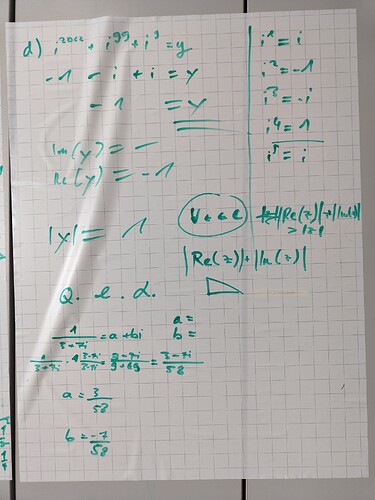 d) i^2022 + i^99 + i^9 = y
-1 - i + i = y
-1 = y
Im(y) = -
Re(y) = -1
|y| = 1
Q. e. d.
1/(3+7i) = a+bi
a =
b =
1/(3+7i) · (3-7i)/(3-7i) = (3-7i)/(9+49) = (3-7i)/58
a = 3/58
b = -7/58
i^1 = i
i^2 = -1
i^3 = -i
i^4 = 1
i^5 = i
|Re(z)|+|Im(z)|
> |z|
|Re(z)|+|Im(z)|